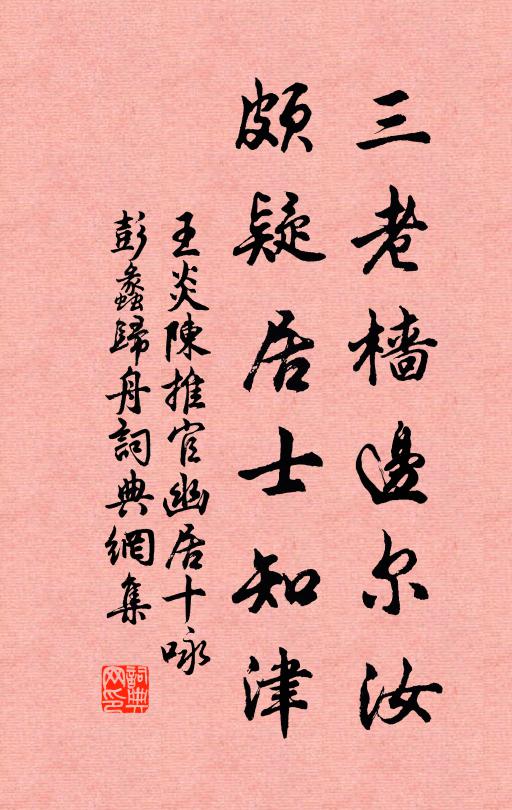 三老檣邊尔汝
頗疑居士知津
王炎陳推官幽居十咏
彭蠡歸舟詞典網集
詞典網印